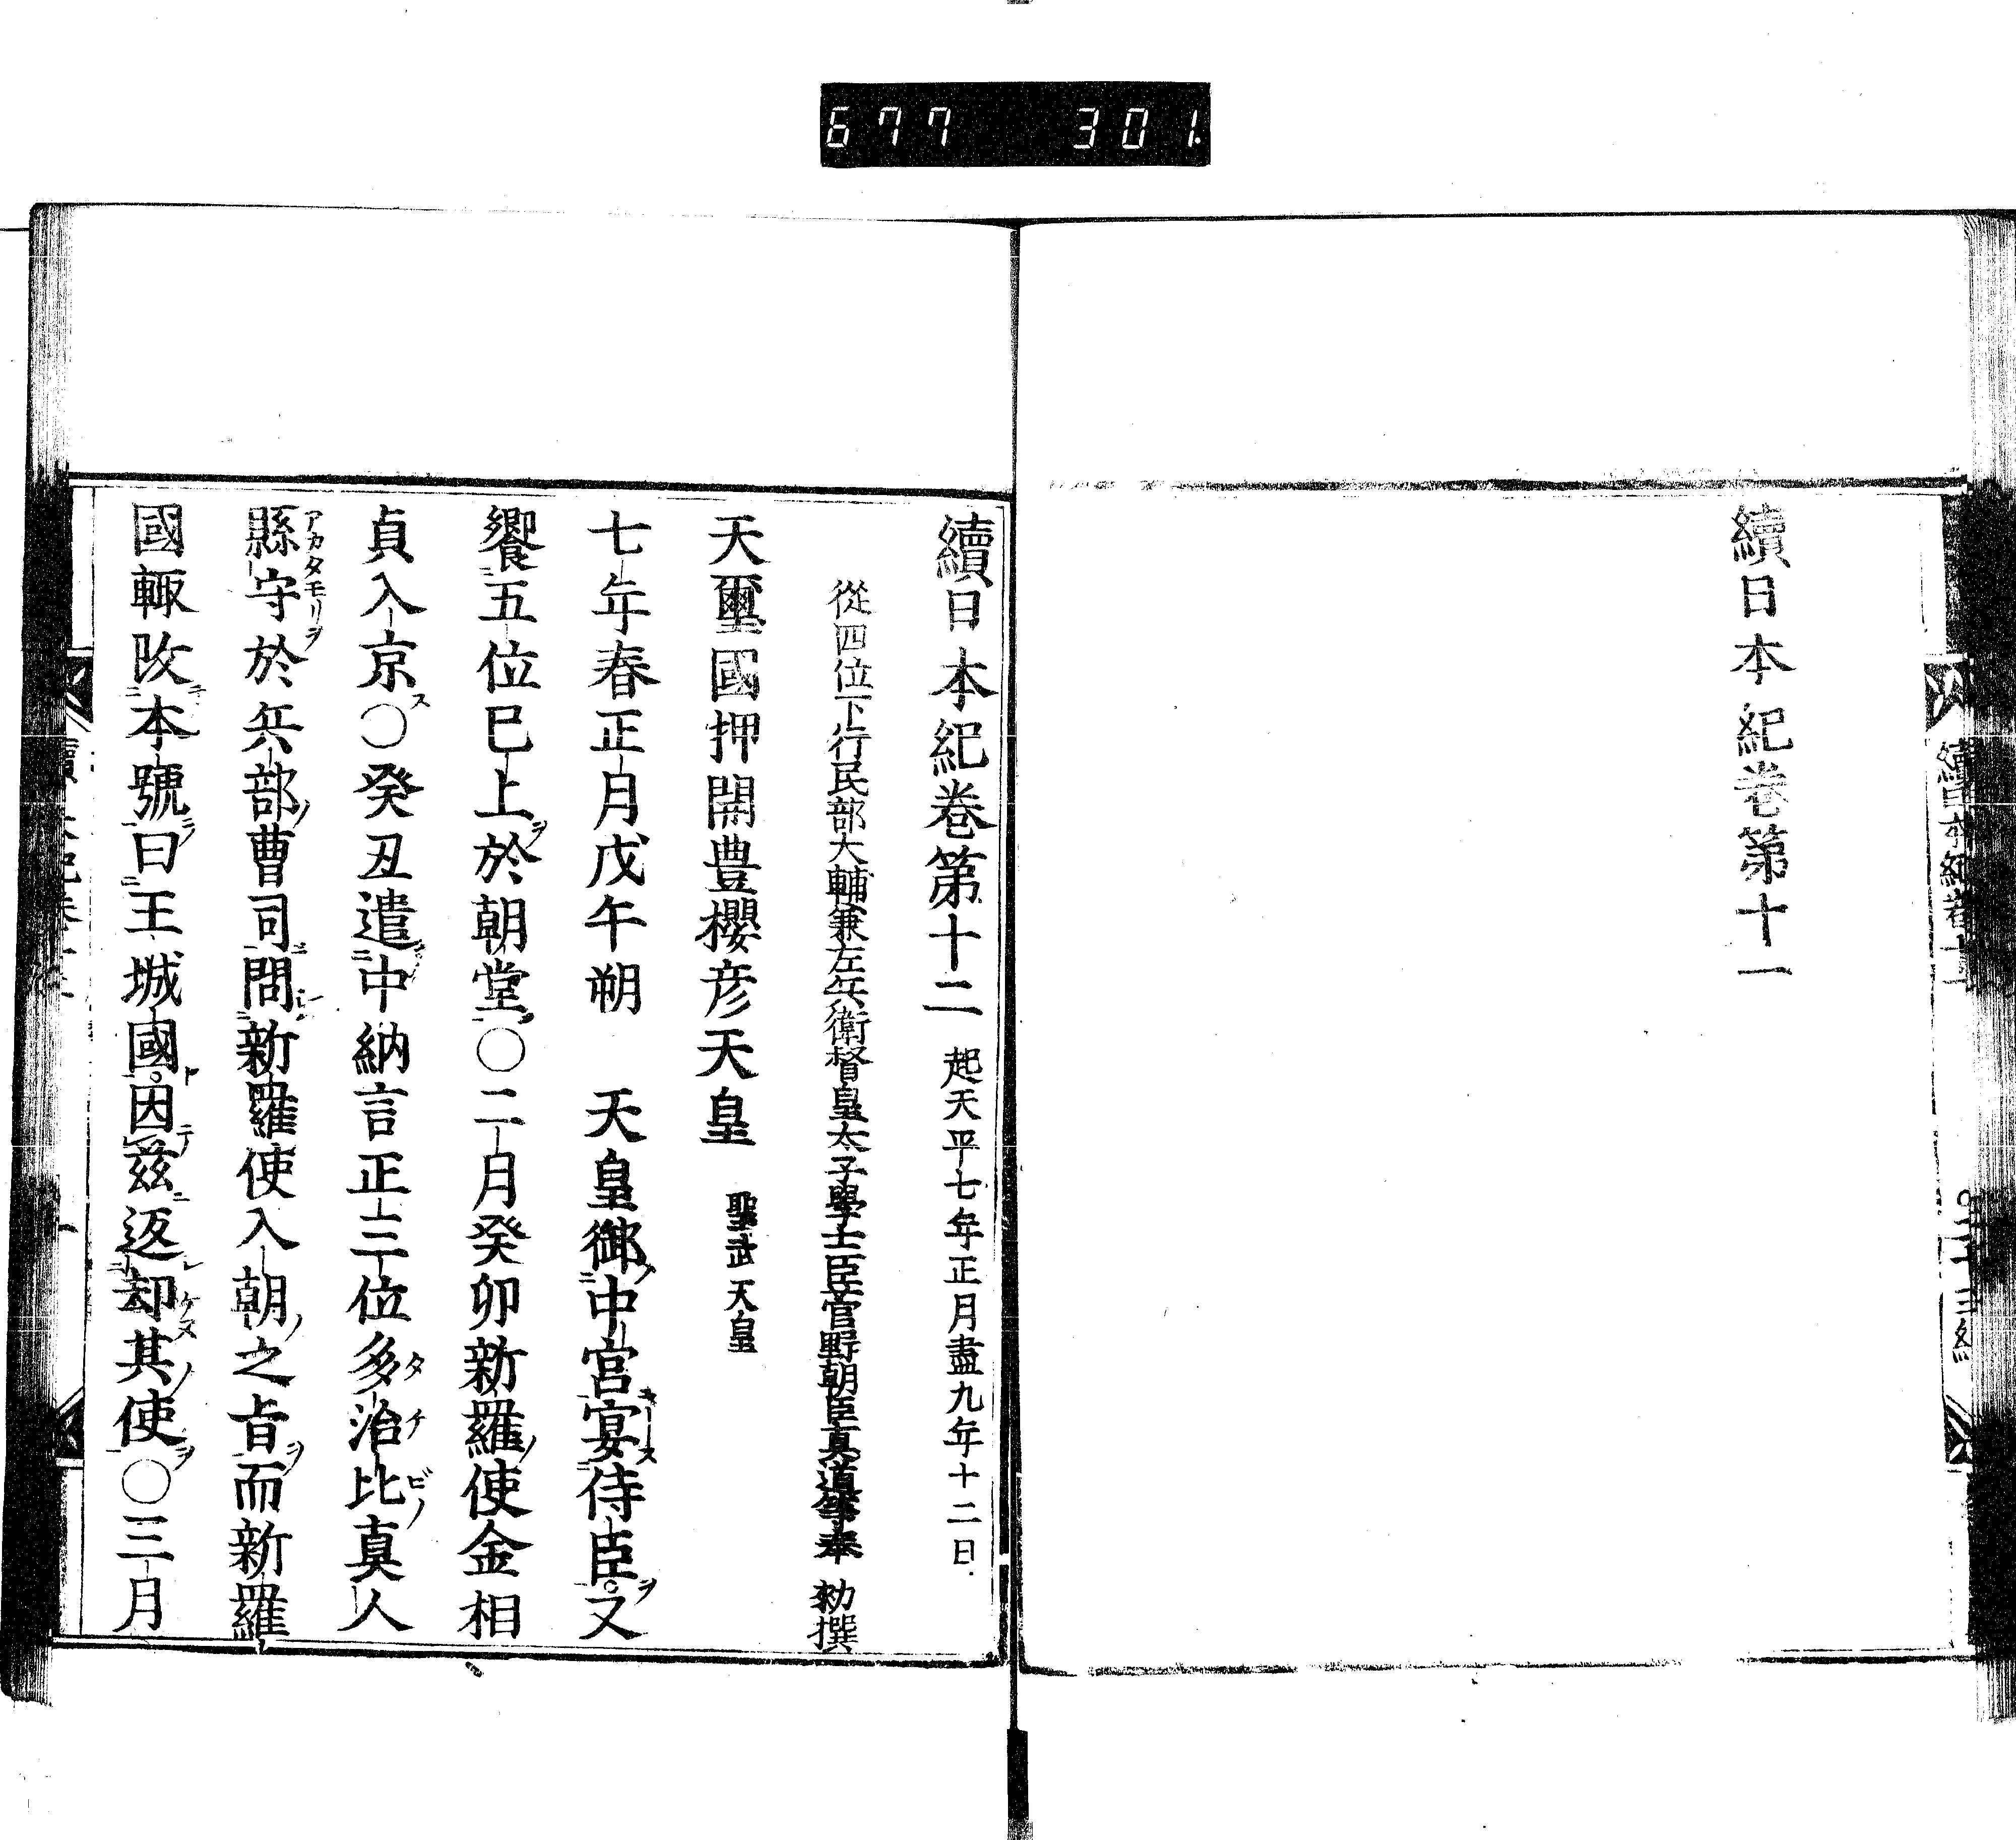 677 301
續日本紀卷第十一
續日本紀卷第十二 起天平七年正月盡九年十二日
從四位下行民部大輔兼左兵衛督皇太子學士臣菅野朝臣真道等奉 勅撰
天璽國押開豊櫻彦天皇 聖武天皇
七年春正月戊午朔 天皇御中宮宴侍臣又
饗五位巳上於朝堂〇二月癸卯新羅使金相
貞入京〇癸丑遣中納言正三位多治比真人
縣守於兵部曹司問新羅使入朝之旨而新羅
國輙改本號曰王城國因茲返却其使〇三月